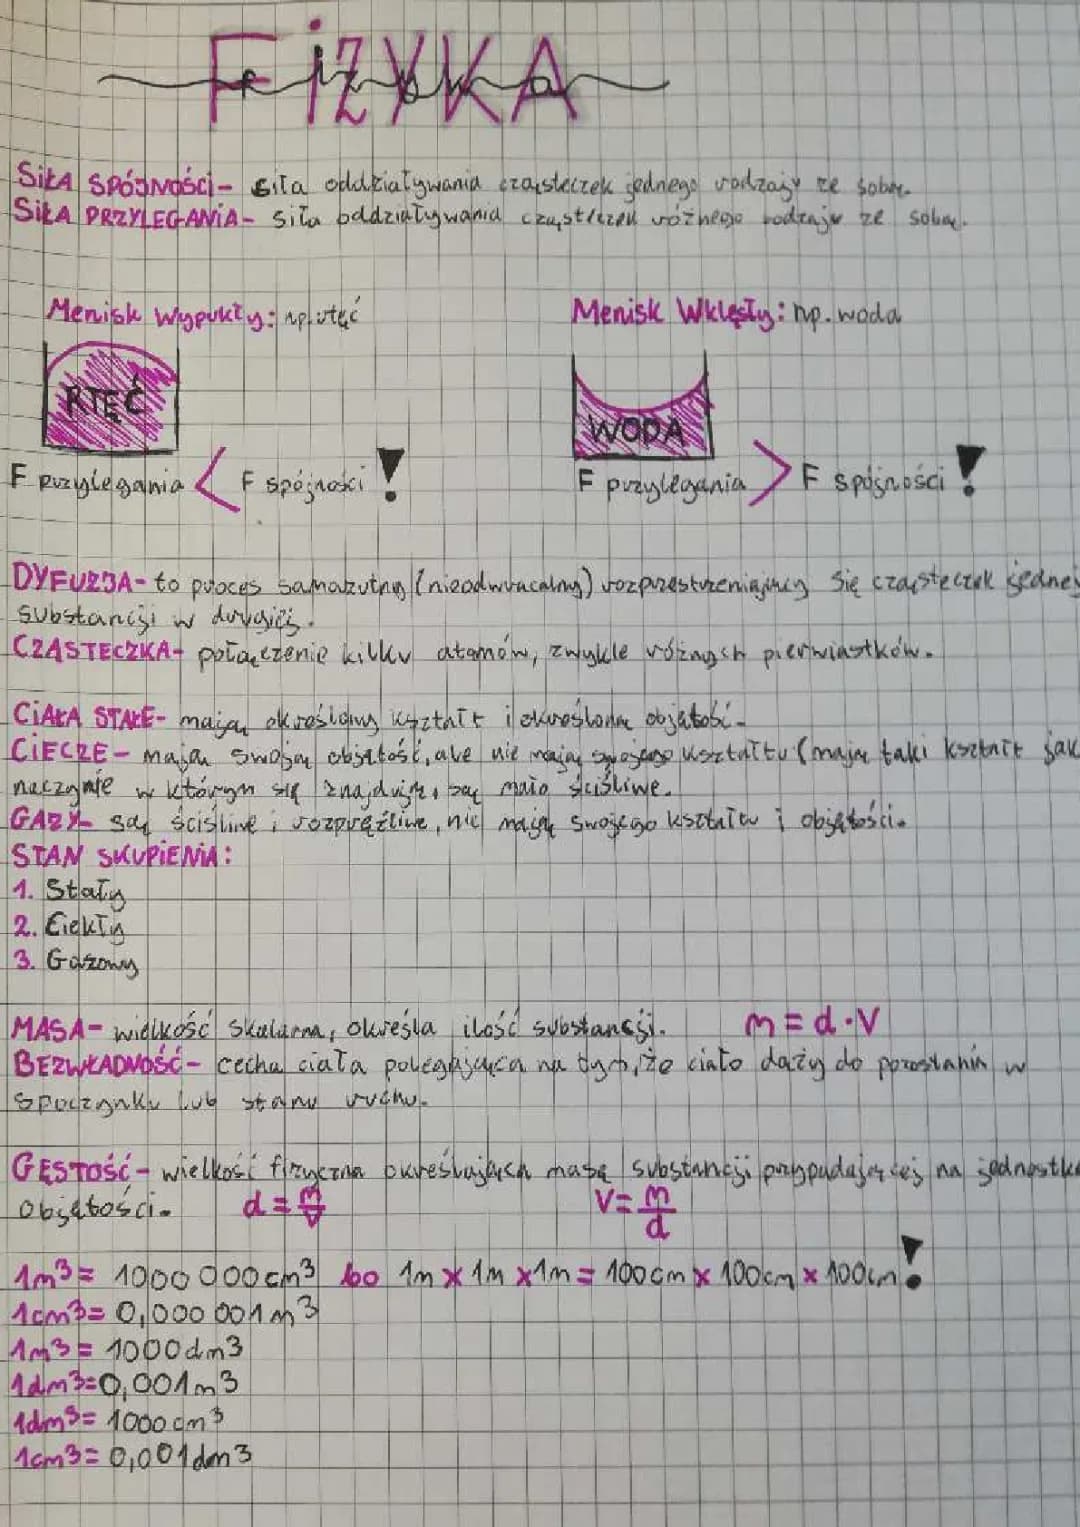 FIZYKA
SIŁA SPÓJNOŚCI- siła oddziaływania cząsteczek jednego rodzaju ze sobą.
SIŁA PRZYLEGANIA- siła oddziaływania cząsteczek różnego rodzaju ze sobą.
Menisk Wypukły: np. rtęć
Menisk Wklęsły: np. woda
RTĘĆ
WODA
F przylegania < F spójności !
F przylegania > F spójności !
DYFUZJA- to proces samorzutny (nieodwracalny) rozprzestrzeniający się cząsteczek jednej
substancji w drugiej.
CZĄSTECZKA- połączenie kilku atomów, zwykle różnych pierwiastków.
CIAŁA STAŁE- mają określony kształt i określoną objętość.
CIECZE- mają swoją objętość, ale nie mają swojego kształtu (mają taki kształt jak
naczynie w którym się znajdują, są mało ściśliwe.
GAZY- są ściśliwe i rozprężliwe, nie mają swojego kształtu i objętości.
STAN SKUPIENIA:
1. Stały
2. Ciekły
3. Gazowy
MASA- wielkość skalarna, określa ilość substancji. m=d·V
BEZWŁADNOŚĆ- cecha ciała polegająca na tym, że ciało dąży do pozostania w
spoczynku lub stanu ruchu.
GĘSTOŚĆ- wielkość fizyczna określająca masę substancji przypadającej na jednostkę
objętości. d=m/V V=m/d
1m³= 1000 000cm³ bo 1m×1m×1m=100cm×100cm×100cm!
1cm³=0,000 001m³
1m³= 1000dm³
1dm³=0,001m³
1dm³= 1000cm³
1cm³=0,001dm³